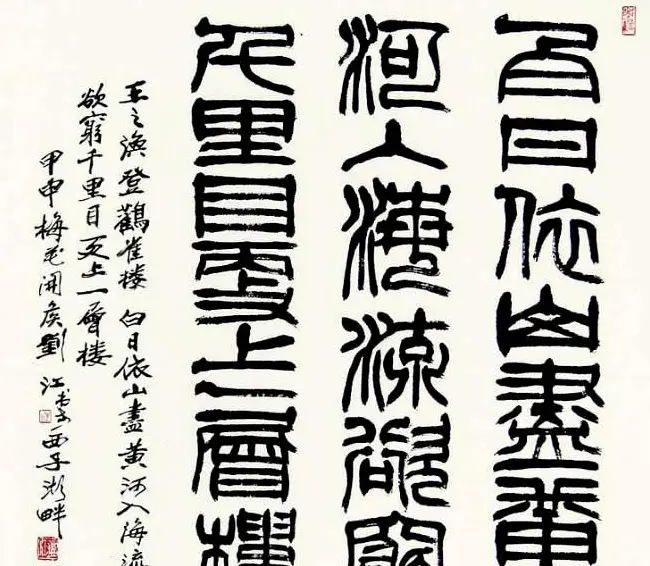 白日依山盡黄
河入海流欲窮
千里目更上一層樓
王之渙登鸛雀楼 白日依山盡黄河入海流
欲窮千里目更上一層楼
甲申梅花開候劉江書於西子湖畔